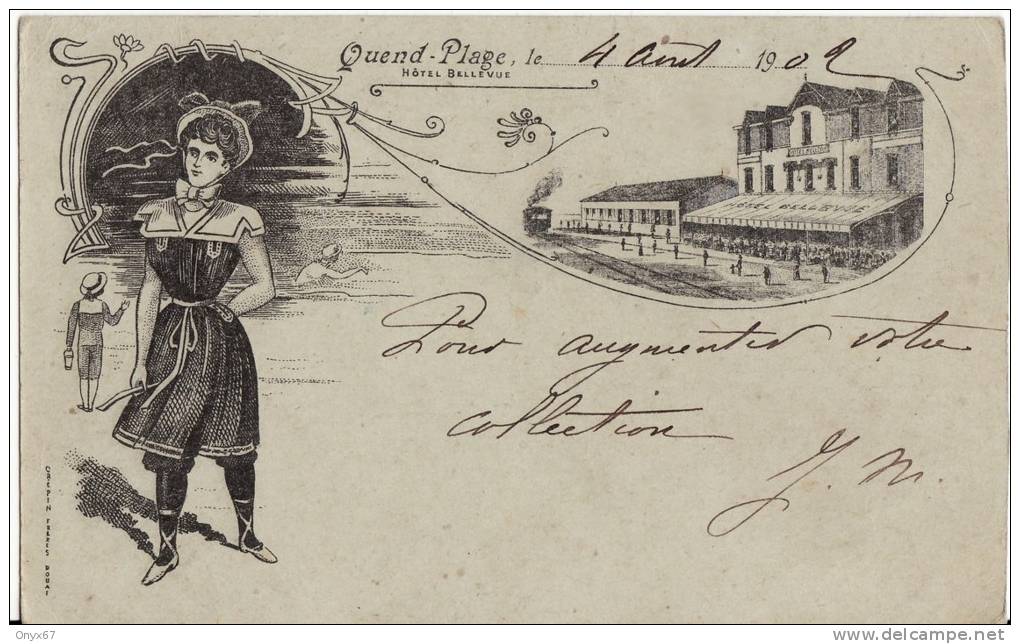 Quend-Plage, le 4 Août 1902
HÔTEL BELLEVUE
HOTEL BELLEVUE
Pour augmenter votre
collection
J. M.
CRÉPIN FRÈRES DOUAI
Onyx67
www.delcampe.net